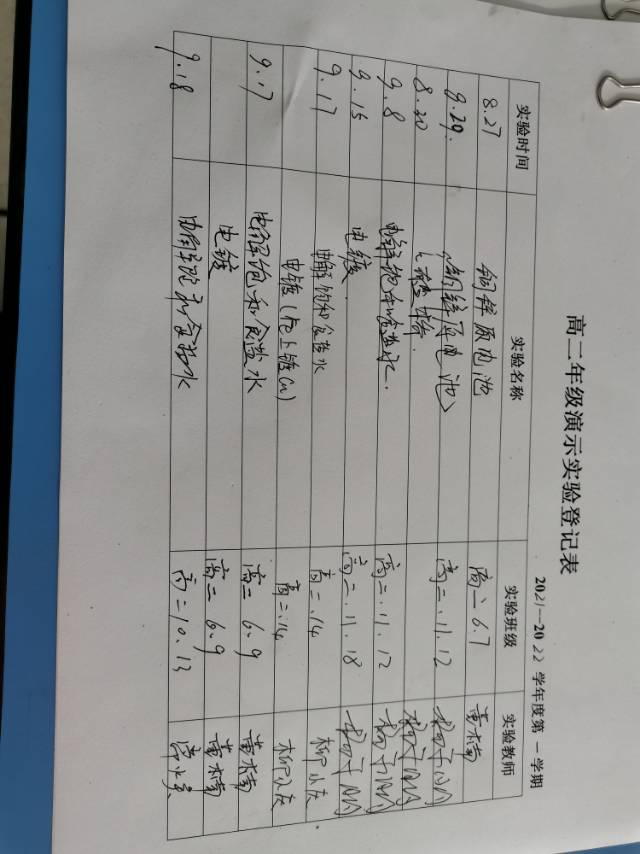 高二年级演示实验登记表
2021—2022 学年度第一学期
实验时间 实验名称 实验班级 实验教师
8.27 铜锌原电池 高二6.7 黄楠
8.29. (铜锌原电池) 高二.11.12
8.30
9.8 电解饱和食盐水. 高二.11.12
9.15 电镀 高二.11.18
9.17 电解饱和食盐水 高二.14
电镀(上镀Cu) 高二.14
9.17 电解饱和食盐水 高二6.9 黄楠
电镀 高二6.9 黄楠
9.18 电解饱和食盐水 高二10.13